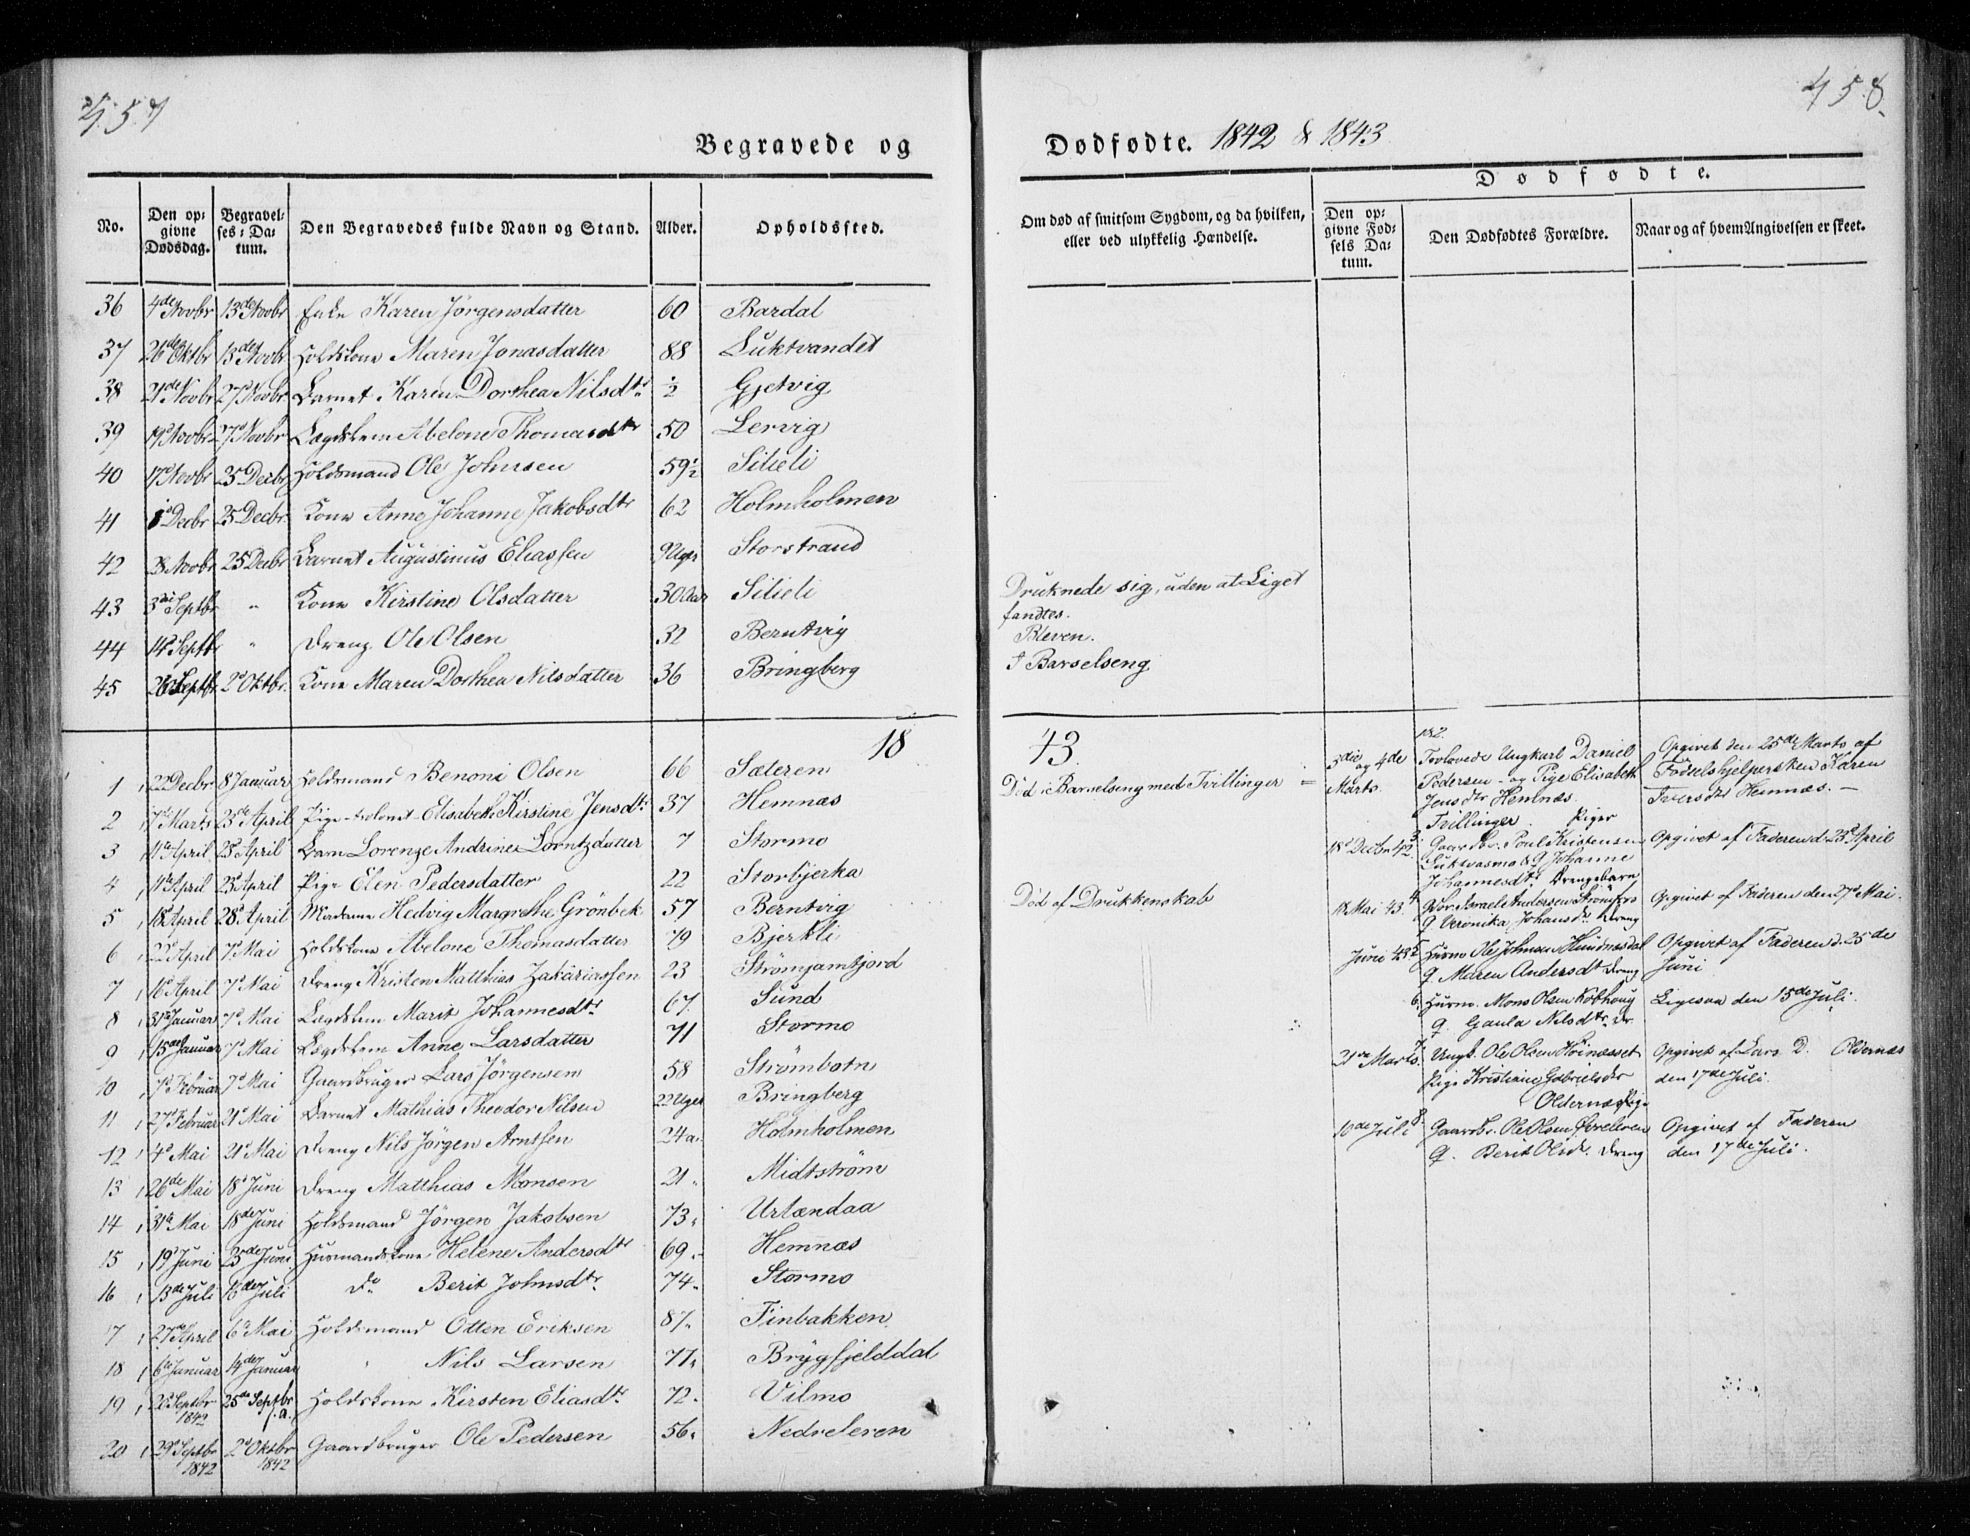 457
458.
Begravede og
Dødfødte. 1842 & 1843
Dødfødte.
No. Den opgivne Dødsdag. Begravelses-Datum. Den Begravedes fulde Navn og Stand. Alder. Opholdssted. Om død af smitsom Sygdom, og da hvilken, eller ved ulykkelig Hændelse. Den opgivne Fødsels Datum. Den Dødfødtes Forældre. Naar og af hvem Angivelsen er skeet.
36 4de Novbr 13de Novbr Enke Karen Jörgensdatter 60 Bardal
37 26de Oktbr 13de Novbr Holdskone Maren Jonasdatter 88 Luktvandet
38 21de Novbr 27d Novbr Barnet Karen Dorthea Nilsdtr ½ Gjetvig
39 19d Novbr 27d Novbr Lægdslem Abelone Thomasdtr 50 Lervig
40 17d Novbr 25 Decbr Holdsmand Ole Johnsen 59½ Silieli
41 1d Decbr 25 Decbr Kone Anne Johanne Jakobsdtr 62 Holmholmen
42 28 Novbr 25 Decbr Barnet Augustinus Eliassen 9 Uger Storstrand
43 3die Septbr " Kone Kirstine Olsdatter 30 Aar Silieli Druknede sig, uden at Liget
fandtes.
44 14d Septbr " Dreng Ole Olsen 32 Berntvig Bleven.
45 26d Septbr 2d Oktbr. Kone Maren Dorthea Nilsdatter 36 Bringberg I Barselseng
18 43.
1 22 Decbr 8 Januar Holdsmand Benoni Olsen 66 Sæteren
2 7de Marts 23de April Pige Elisabeth Kirstine Jensdtr 37 Hemnæs Död i Barselseng med Tvillinger
3 11te April 23d April Barn Lorenze Andrine Lorntzdatter 7 Stormo
4 11te April 23d April Pige Elen Pedersdatter 22 Storbjerka
5 18d April 28d April Madame Hedvig Margrethe Grönbek 57 Berntvig Död af Drukkenskab
6 22d April 7d Mai Holdskone Abelone Thomasdatter 79 Bjerkli
7 16d April 7d Mai Dreng Kristen Matthias Zakariassen 23 Strömjamtjord
8 31te Januar 7d Mai Lægdslem Marit Johannesdtr 67. Sund
9 15de Januar 7d Mai Lægdslem Anne Larsdatter 71 Stormo
10 7d Februar 7d Mai Gaardbruger Lars Jörgensen 58 Strömbotn
11 27d Februar 21d Mai Barnet Mathias Theodor Nilsen 22 Uger Bringberg
12 4d Mai 21d Mai Dreng Nils Jörgen Arntsen 24 a. Holmholmen
13 26de Mai 18d Juni Dreng Matthias Monsen 21 " Midtström
14 31te Mai 18de Juni Holdsmand Jörgen Jakobsen 73 " Urlændaa
15 19d Juni 25de Juni Husmandskone Helene Andersdtr 69 " Hemnæs
16 13de Juli 16de Juli Do Berit Johnsdtr. 74 " Stormo
17 27de April 6d Mai Holdsmand Otten Eriksen 87 " Finbakken
18 6te Januar 14de Januar " Nils Larsen 77 " Brygfjelddal
19 20d Septbr 1842 25de Septbr f.a. Holdskone Kirsten Eliasdtr 72 " Vilmo
20 29d Septbr 1842 2d Oktbr 1842 Gaardbruger Ole Pedersen 56 " Nedreleren
3die og 4de Marts. 1 & 2. Trolovede Ungkarl Daniel Opgivet den 25de Marts af
Pedersen og Pige Elisabeth Födselshjelpersken Karen
Jensdtr Hemnæs. Iversdtr Hemnæs.
Tvillinger Piger
18d Decbr 42 3. Gaardbr. Poul Kristensen Opgivet af Faderen d. 23d April
Luktvasmo & Q Johanne
Johannesdtr Drengebarn
18 Mai 43. 4 Israel Andersen Opgivet af Faderen den 27d Mai.
Q Veronika Johansdr Dreng
Juni 43 5 Husm Ole Johnsen Opgivet af Faderen d. 25de
Q Maren Andersdtr Dreng Juni
6. Husm. Mons Olsen Ligesaa den 15de Juli.
Q. Gaula Nilsdtr. Dr.
21de Marts. 7. Ungk. Ole Olsen Opgivet af Lars D. Oldernæs
Pige Kristine Gabrielsdtr den 17de Juli.
Oldernæs Pige
10de Juli 8. Gaardbr. Ole Olsen Övreleren Opgivet af Faderen
Q. Berit Olsdr. Dreng den 17de Juli.